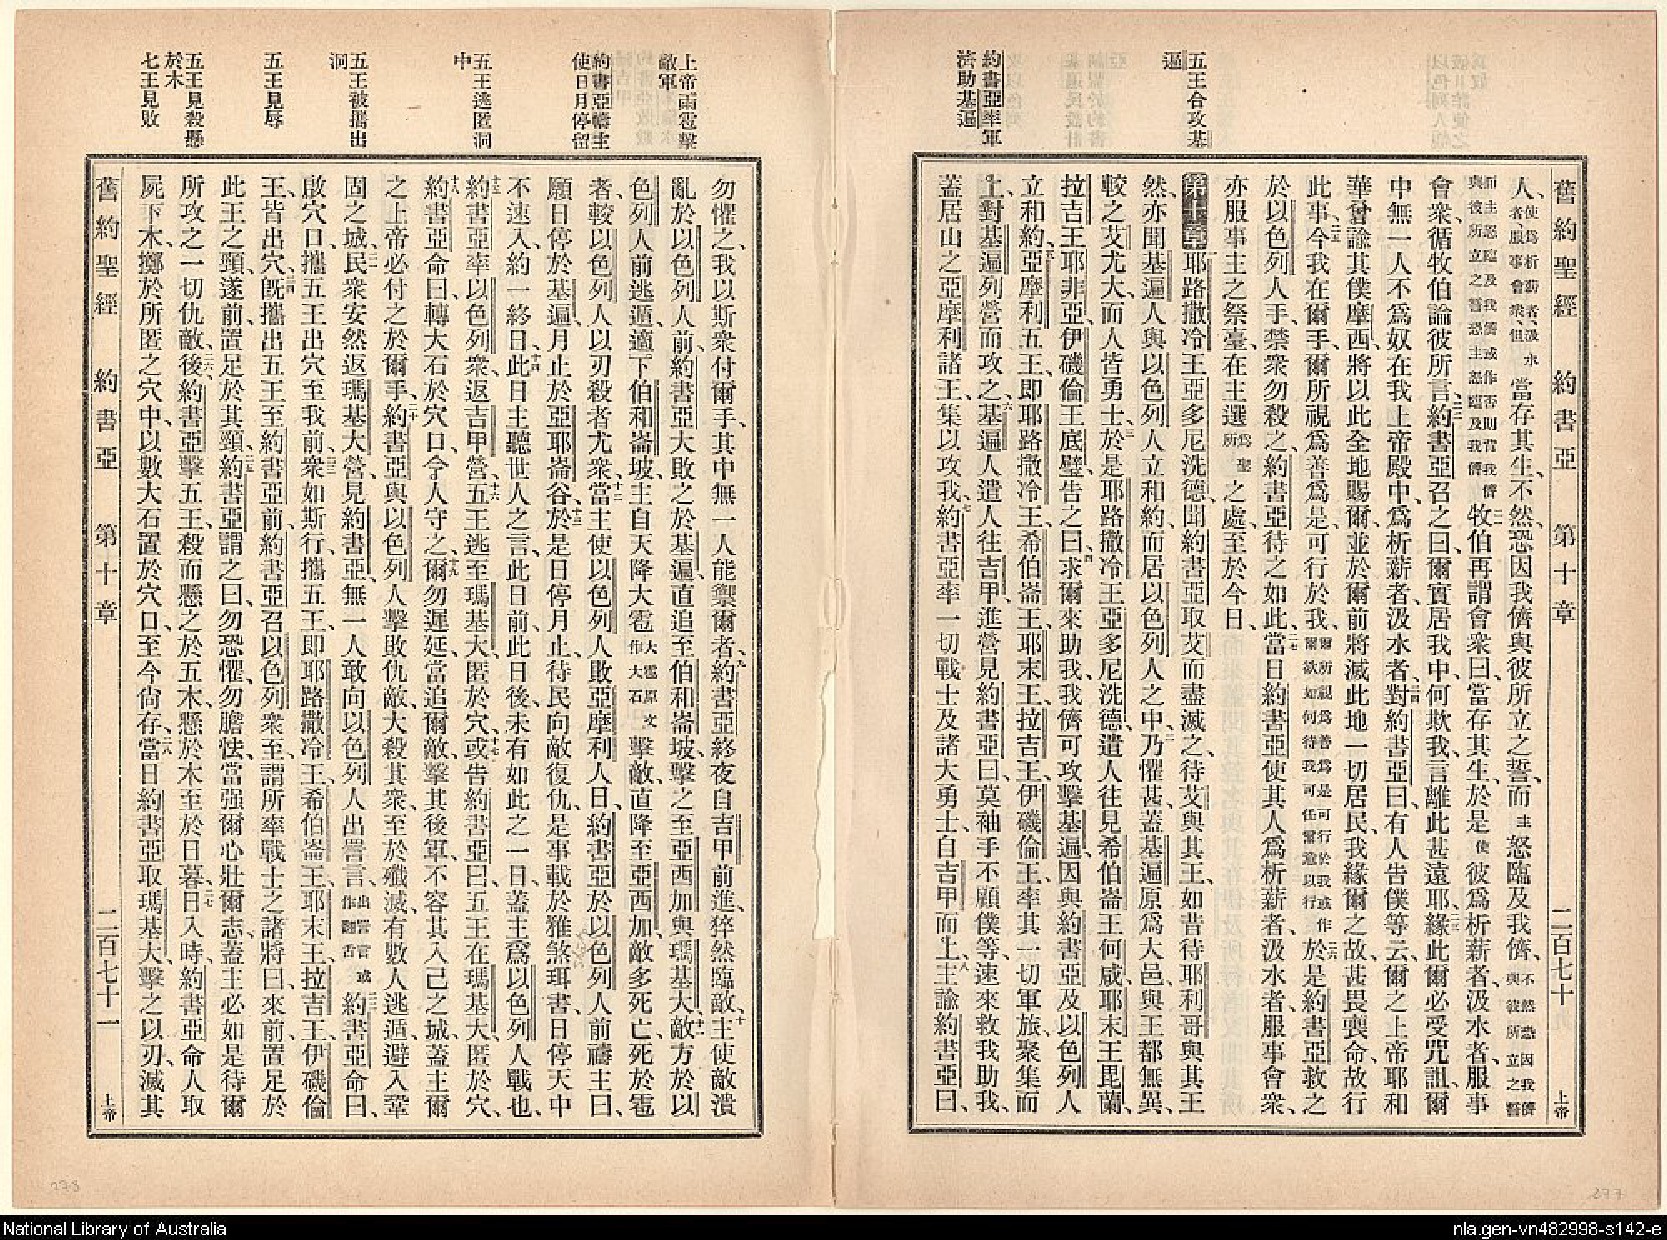 五王合攻基
遍
約書亞率軍
濟助基遍
舊約聖經 約書亞 第十章 二百七十 上帝
人、使爲析薪者、汲水者、服事會衆、但當存其生、不然、恐因我儕與彼所立之誓、而主怒臨及我儕、不然恐因我儕與彼所立之誓
而主怒臨及我儕或作否則當我儕與彼所立之誓恐主怒臨及我儕 二一牧伯再謂會衆曰、當存其生、於是使彼爲析薪者、汲水者、服事
會衆、循牧伯論彼所言、二二約書亞召之曰、爾實居我中、何欺我、言離此甚遠耶、二三緣此爾必受咒詛、爾
中無一人不爲奴、在我上帝殿中、爲析薪者、汲水者、二四對約書亞曰、有人告僕等云、爾之上帝耶和
華曾諭其僕摩西、將以此全地賜爾、並於爾前將滅此地一切居民、我緣爾之故、甚畏喪命、故行
此事、二五今我在爾手、爾所視爲善爲是、可行於我、爾所視爲善爲是可行於我或作爾欲如何待我可任當意以行 二六於是約書亞救之
於以色列人手、禁衆勿殺之、約書亞待之如此、二七當日約書亞使其人爲析薪者、汲水者、服事會衆、
亦服事主之祭臺、在主選所爲聖之處、至於今日、
第十章 耶路撒冷王亞多尼洗德、聞約書亞取艾而盡滅之、待艾與其王、如昔待耶利哥與其王
然、亦聞基遍人與以色列人立和約、而居以色列人之中、二乃懼甚、蓋基遍原爲大邑、與王都無異、
較之艾尤大、而人皆勇士、三於是耶路撒冷王亞多尼洗德、遣人往見希伯崙王何咸、耶末王毘蘭、
拉吉王耶非亞、伊磯倫王底璧、告之曰、四求爾來助我、我儕可攻擊基遍、因與約書亞及以色列人
立和約、五亞摩利五王、卽耶路撒冷王、希伯崙王、耶末王、拉吉王、伊磯倫王、率其一切軍旅、聚集而
上、對基遍列營而攻之、六基遍人遣人往吉甲進營、見約書亞曰、莫袖手不顧僕等、速來救我助我、
蓋居山之亞摩利諸王、集以攻我、七約書亞率一切戰士及諸大勇士、自吉甲而上、八主諭約書亞曰、
上帝雨雹擊
敵軍
約書亞禱主
使日月停留
五王逃匿洞
中
五王被攜出
洞
五王見辱
五王見殺懸
於木
七王見敗
勿懼之、我以斯衆付爾手、其中無一人能禦爾者、九約書亞終夜自吉甲前進、猝然臨敵、十主使敵潰
亂於以色列人前、約書亞大敗之於基遍、直追至伯和崙坡、擊之至亞西加與瑪基大、十一敵方於以
色列人前逃遁、適下伯和崙坡、主自天降大雹大雹原文作大石擊敵、直降至亞西加、敵多死亡、死於雹
者、較以色列人以刃殺者尤衆、十二當主使以色列人敗亞摩利人日、約書亞於以色列人前禱主曰、
願日停於基遍、月止於亞耶崙谷、十三於是日停月止、待民向敵復仇、是事載於雅煞珥書、日停天中、
不速入、約一終日、十四此日主聽世人之言、此日前、此日後、未有如此之一日、蓋主爲以色列人戰也、
十五約書亞率以色列衆、返吉甲營、十六五王逃至瑪基大、匿於穴、十七或告約書亞曰、五王在瑪基大、匿於穴、
十八約書亞命曰、轉大石於穴口、令人守之、十九爾勿遲延、當追爾敵、擊其後軍、不容其入己之城、蓋主爾
之上帝必付之於爾手、二十約書亞與以色列人擊敗仇敵、大殺其衆、至於殲滅、有數人逃遁、避入鞏
固之城、二一民衆安然返瑪基大營、見約書亞、無一人敢向以色列人出詈言、出詈言或作翻舌 二二約書亞命曰、
啟穴口、攜五王出穴至我前、二三衆如斯行、攜五王、卽耶路撒冷王、希伯崙王、耶末王、拉吉王、伊磯倫
王、皆出穴、二四旣攜出五王至約書亞前、約書亞召以色列衆至、謂所率戰士之諸將曰、來前、置足於
此王之頸、遂前置足於其頸、二五約書亞謂之曰、勿恐懼、勿膽怯、當强爾心、壯爾志、蓋主必如是待爾
所攻之一切仇敵、二六後約書亞擊五王、殺而懸之於五木、懸於木至於日暮、二七日入時、約書亞命人取
屍下木、擲於所匿之穴中、以數大石置於穴口、至今尙存、二八當日約書亞取瑪基大、擊之以刃、滅其
舊約聖經 約書亞 第十章 二百七十一 上帝
278
277
National Library of Australia
nla.gen-vn482998-s142-e